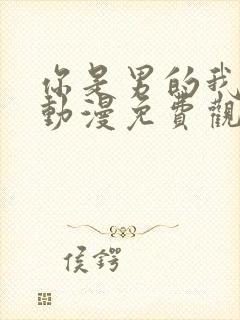 你是男的我
動漫免費觀
侯鍔